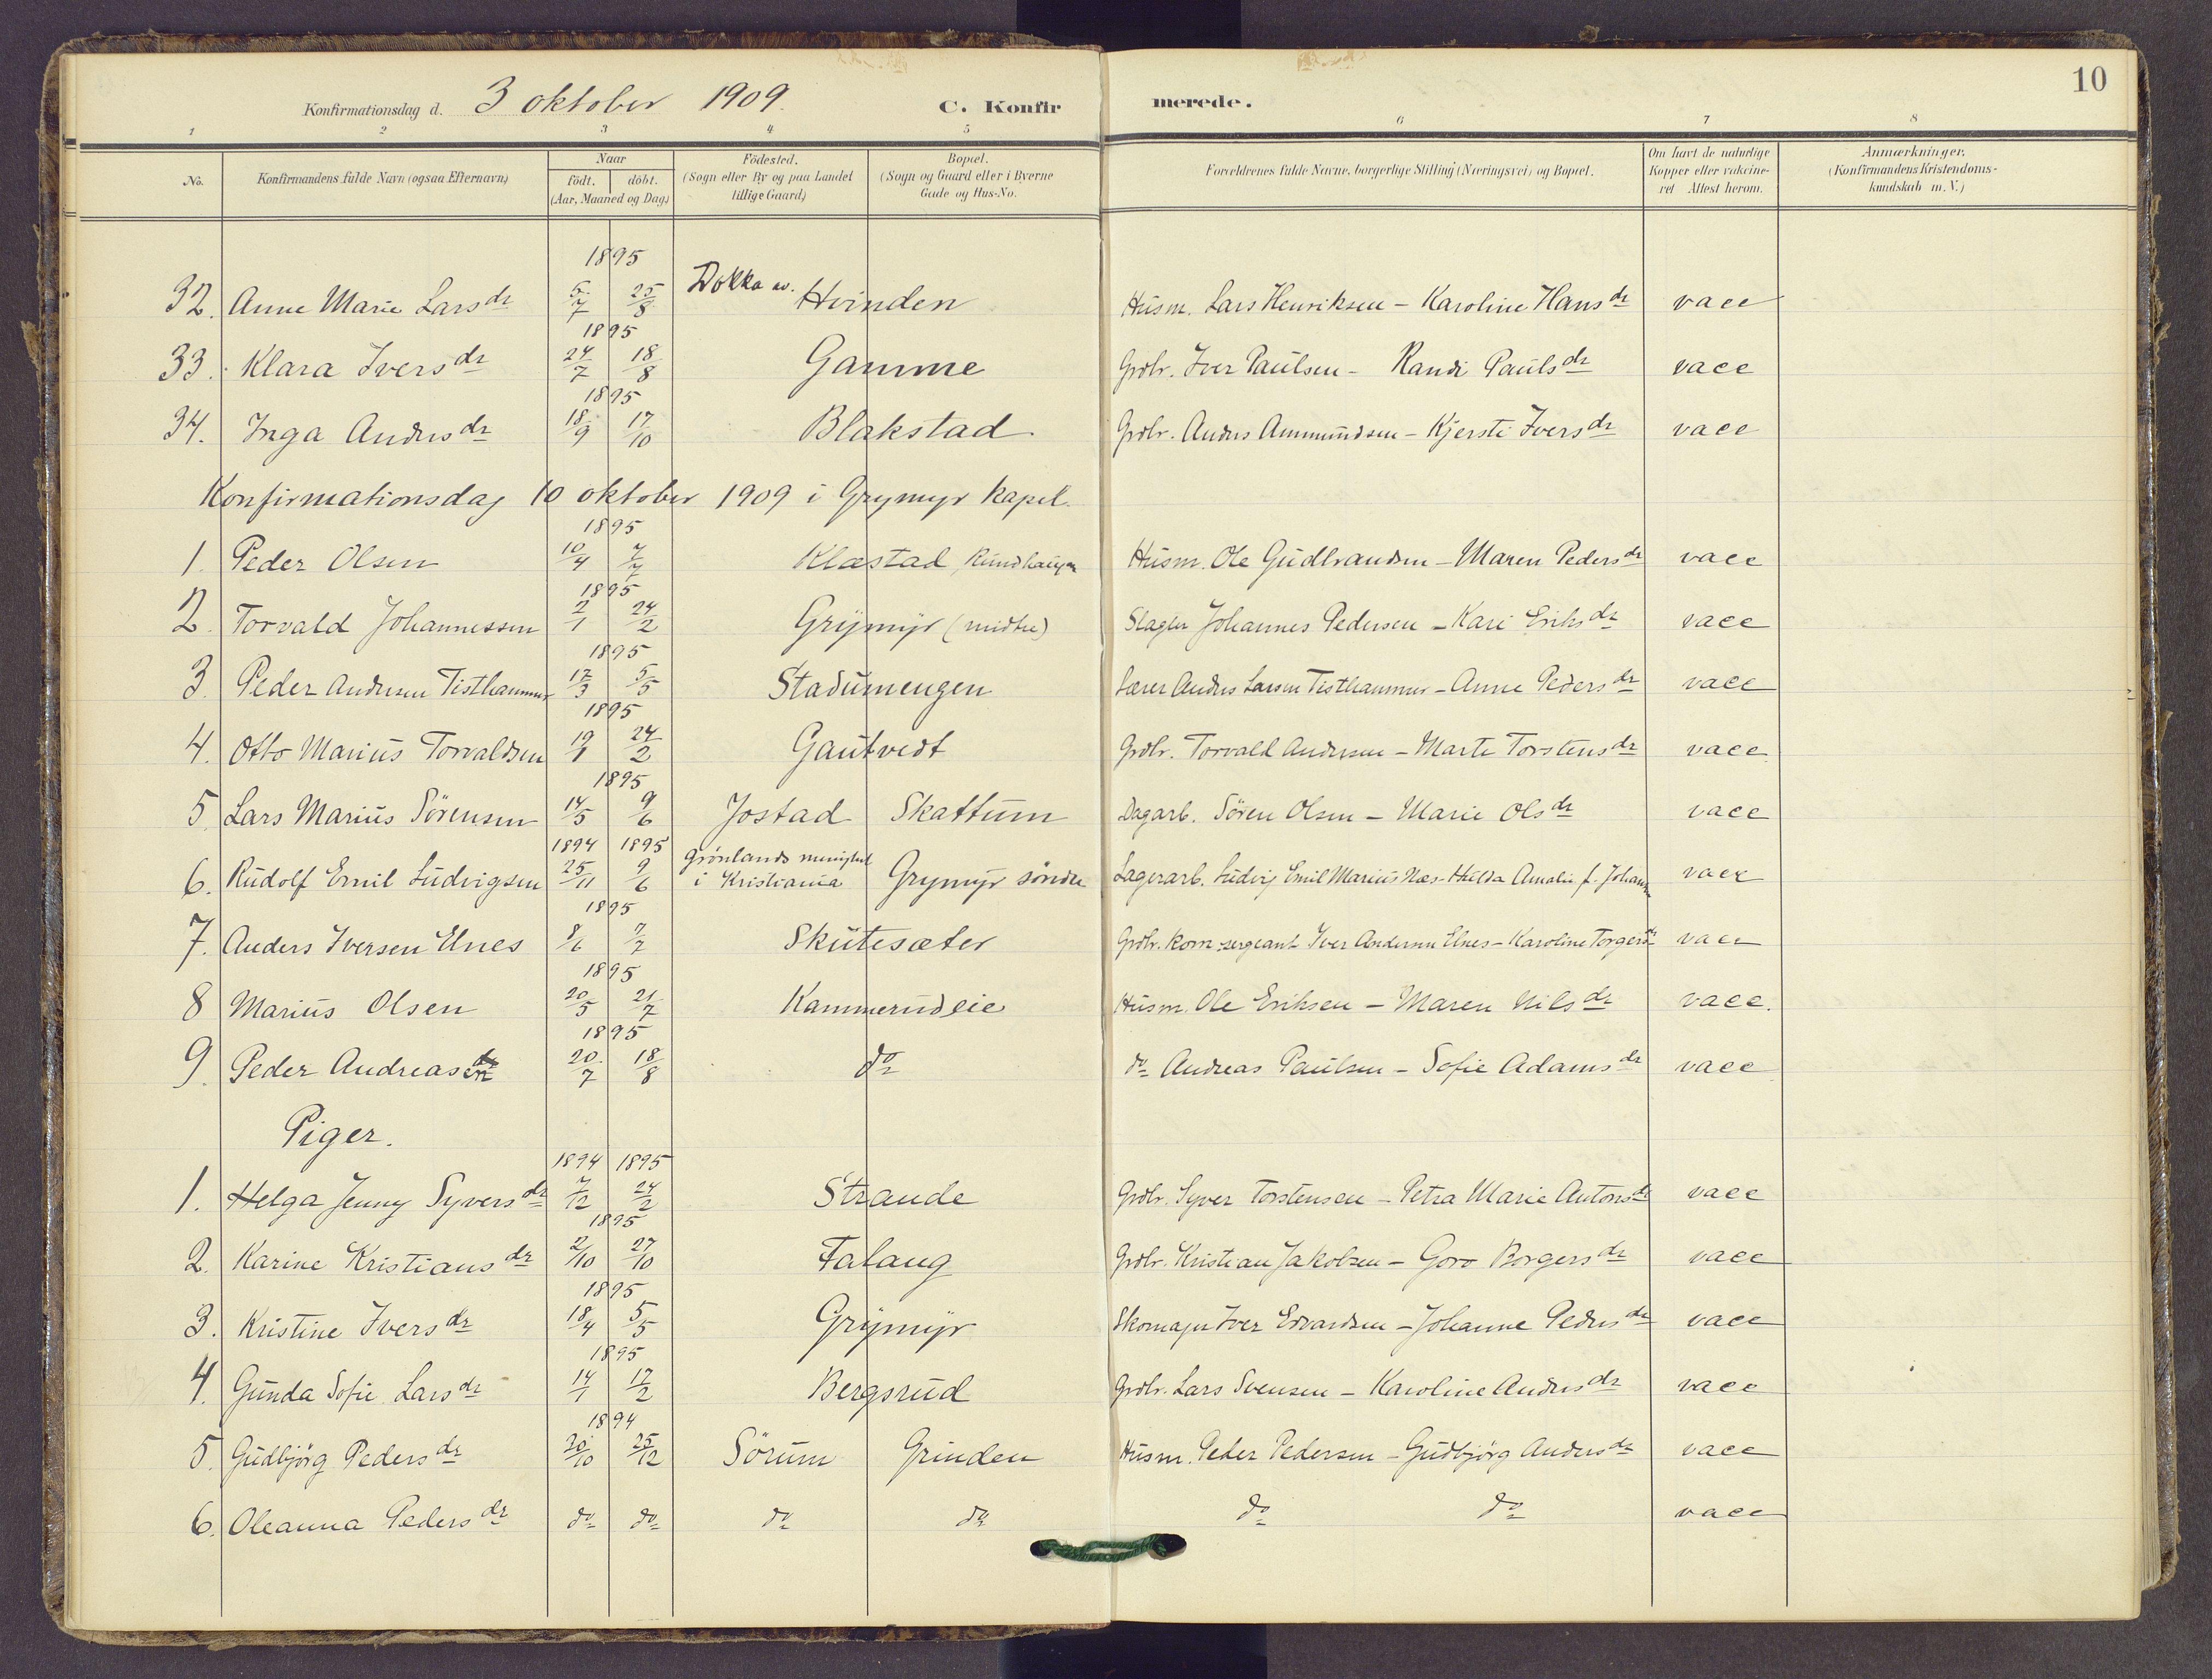 10
Konfirmationsdag d. 3 oktober 1909. C. Konfirmerede.
1 2 3 4 5 6 7 8
No. Konfirmandens fulde Navn (ogsaa Efternavn) Naar födt. döbt. (Aar, Maaned og Dag) Födested. (Sogn eller By og paa Landet tillige Gaard) Bopæl. (Sogn og Gaard eller i Byerne Gade og Hus-No. Forældrenes fulde Navne, borgerlige Stilling (Næringsvei) og Bopæl. Om havt de naturlige Kopper eller vakcineret Attest herom. Anmærkninger. (Konfirmandens Kristendomskundskab m. V.)
1895
32. Anne Marie Larsdr 5/7 25/8 Dokka av. Hvinden Husm. Lars Henriksen - Karoline Hansdr vacc
1895
33. Klara Iversdr 24/7 18/8 Gamme Grdbr. Iver Paulsen - Randi Paulsdr vacc
1895
34. Inga Andersdr 18/9 17/10 Blakstad Grdbr. Anders Ammundsen - Kjersti Iversdr vacc
Konfirmationsdag 10 oktober 1909 i Grymyr kapel.
1895
1. Peder Olsen 10/4 7/7 Klæstad Rundhaugen Husm. Ole Gudbrandsen - Maren Pedersdr vacc
1895
2. Torvald Johannessen 2/1 24/2 Grymyr (midtre) Slagter Johannes Pedersen - Kari Eriksdr vacc
1895
3. Peder Andersen Tisthammer 17/3 5/5 Stadumengen Lærer Anders Larsen Tisthammer - Anne Pedersdr vacc
1895
4. Otto Marius Torvaldsen 19/1 24/2 Gautvedt Grdbr. Torvald Andersen - Marte Torstensdr vacc
1895
5. Lars Marius Sörensen 14/5 9/6 Jostad Skattum Dagarb. Sören Olsen - Marie Olsdr vacc
1894 1895
6. Rudolf Emil Ludvigsen 25/11 9/6 Grönlands menighed i Kristiania Grymyr söndre Lagerarb. Ludvig Emil Marius Næs - Hulda Amalie f. Johansen vacc
1895
7. Anders Iversen Elnes 8/6 7/7 Skutesæter Grdbr. kom.sergeant Iver Andersen Elnes - Karoline Torgersdr vacc
1895
8 Marius Olsen 20/5 21/7 Kammerudeie Husm. Ole Eriksen - Maren Nilsdr vacc.
1895
9. Peder Andreassen 20/7 18/8 do do Andreas Paulsen - Sofie Adamsdr vacc
Piger.
1894 1895
1. Helga Jenny Syversdr 7/12 24/2 Strande Grdbr. Syver Torstensen - Petra Marie Antonsdr vacc
1895
2. Karine Kristiansdr 2/10 27/10 Falang Grdbr. Kristian Jakobsen - Goro Borgersdr vacc
1895
3. Kristine Iversdr 18/4 5/5 Grymyr Skomager Iver Edvardsen - Johanne Pedersdr vacc
1895
4. Gunda Sofie Larsdr 14/1 17/2 Bergsrud Grdbr. Lars Svensen - Karoline Andersdr vacc
1894
5. Gudbjörg Pedersdr 20/10 25/12 Sörum Grinden Husm. Peder Pedersen - Gudbjörg Andersdr vacc
6. Oleanna Pedersdr do do do do do do vacc